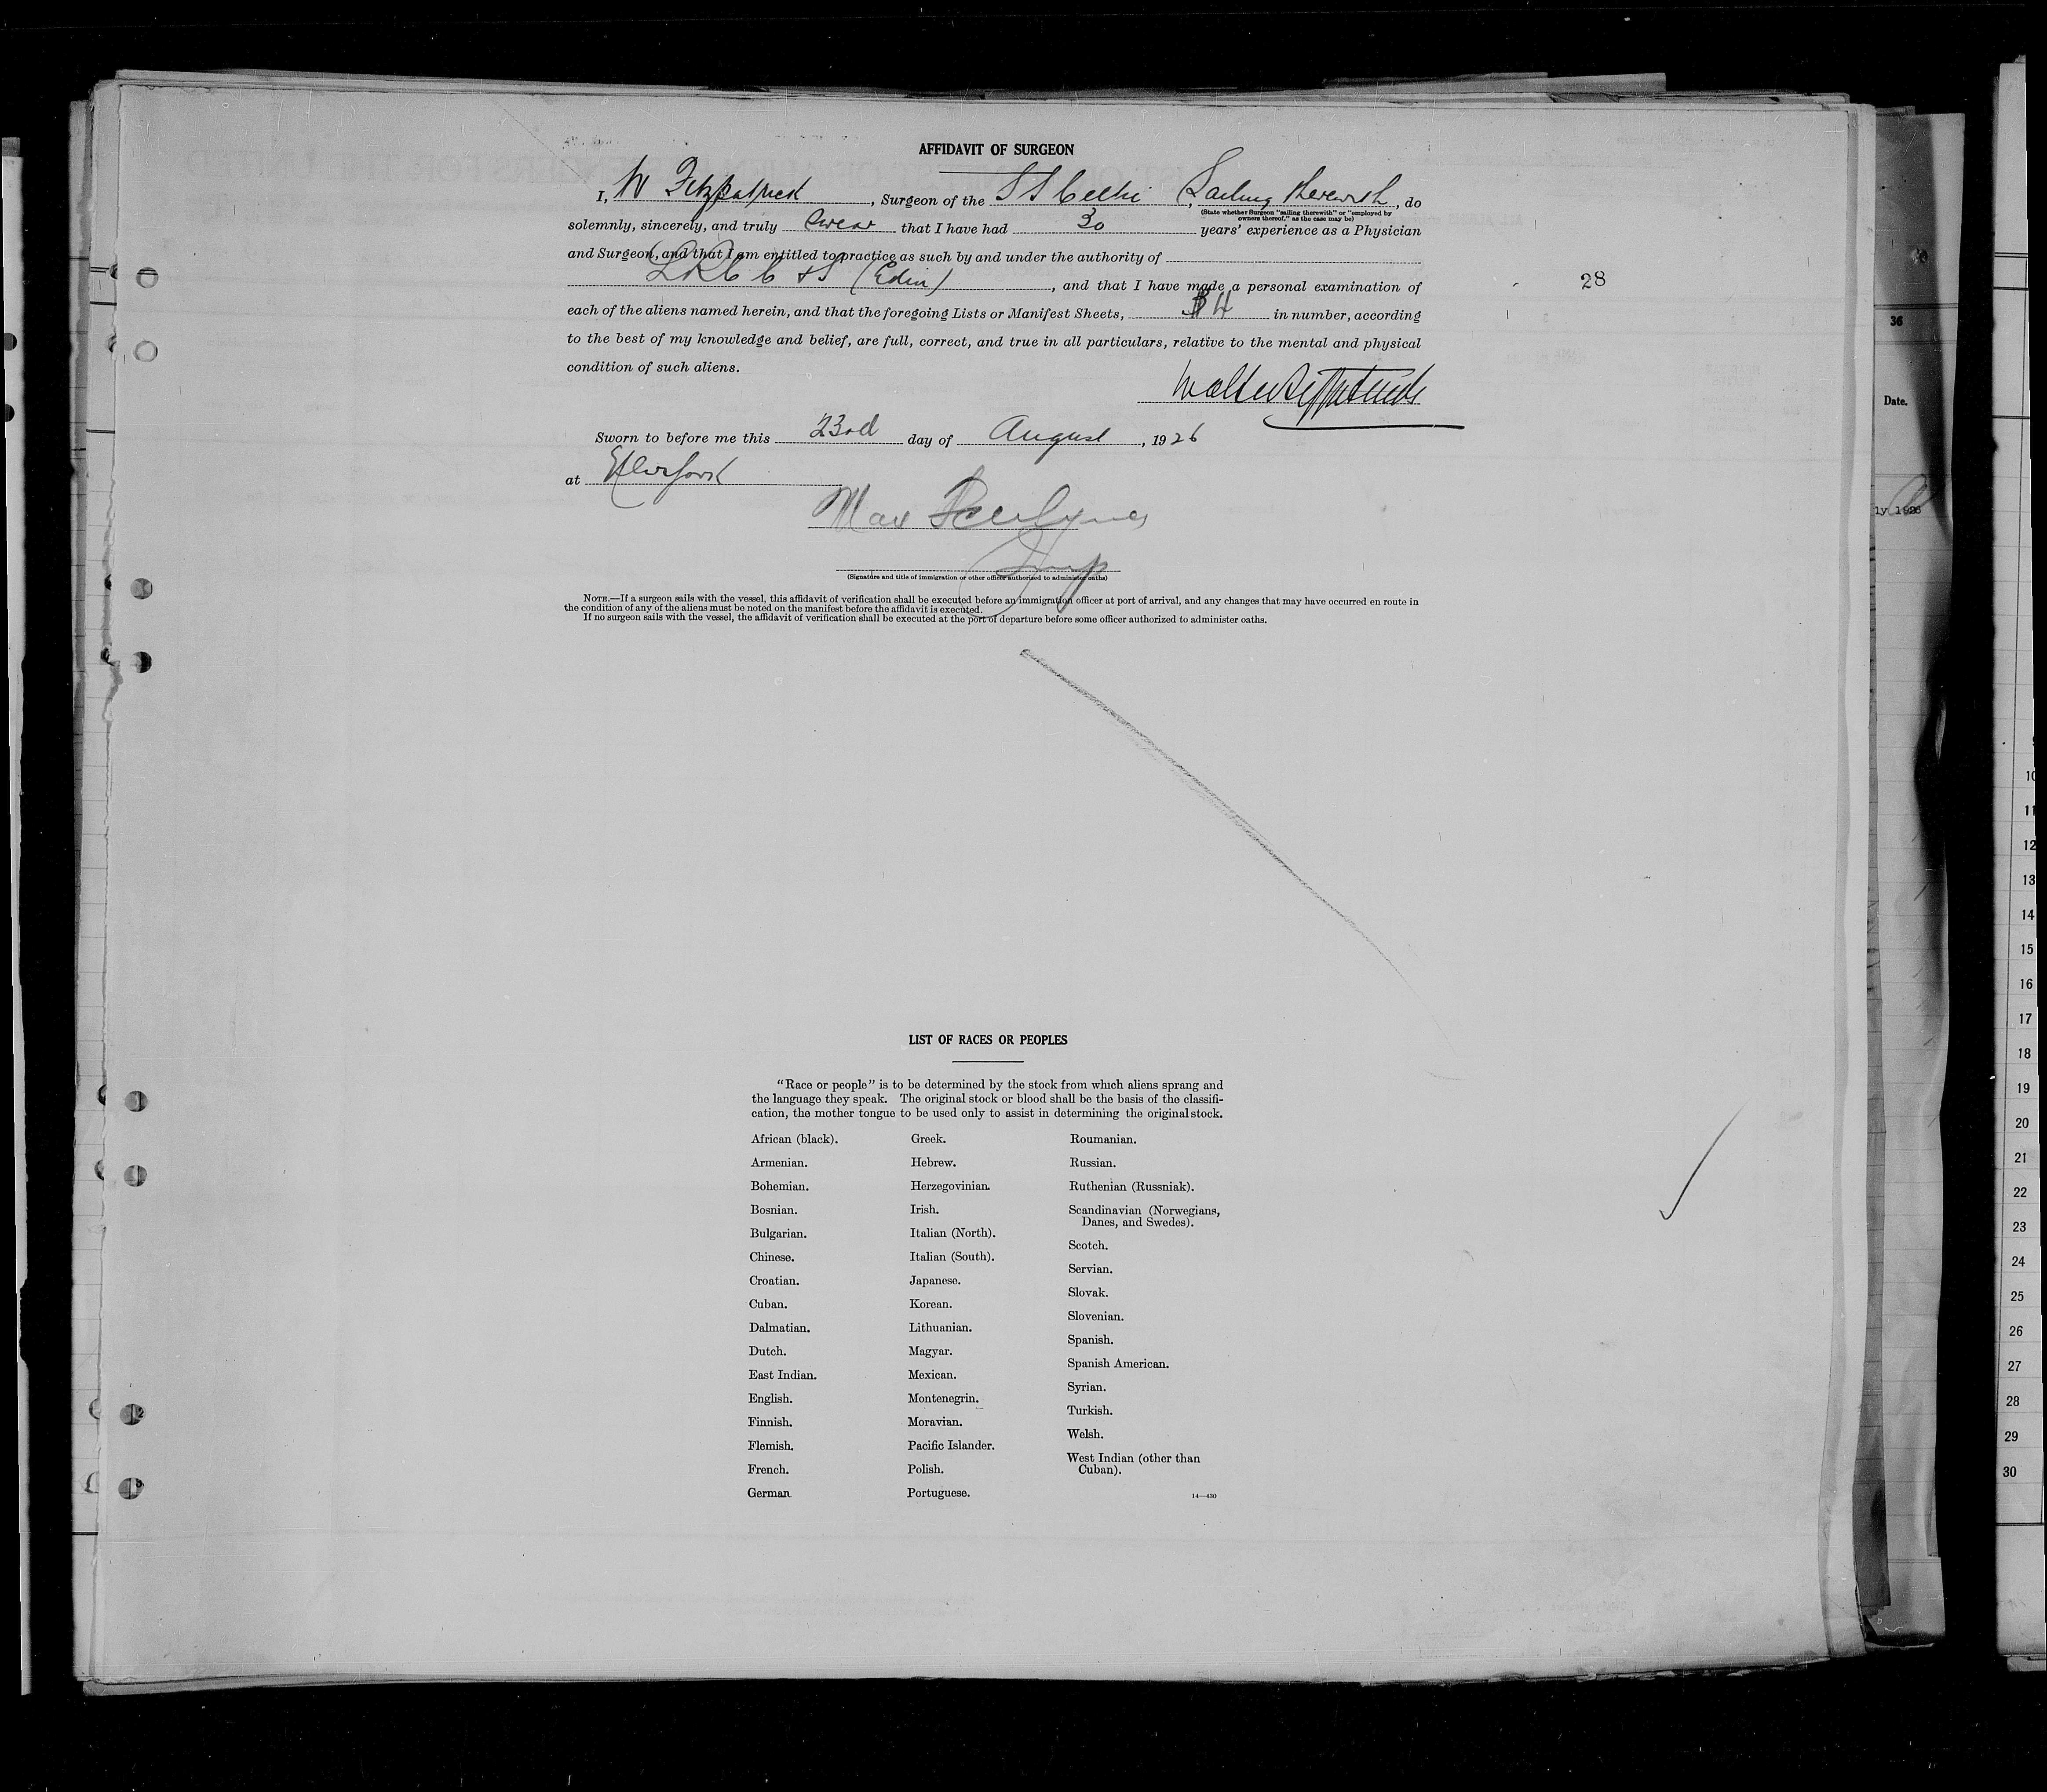 AFFIDAVIT OF SURGEON
I, W Fitzpatrick, Surgeon of the SS Celtic, Sailing therewith, do
(State whether Surgeon "sailing therewith" or "employed by
owners thereof," as the case may be)
solemnly, sincerely, and truly swear that I have had 30 years' experience as a Physician
and Surgeon, and that I am entitled to practice as such by and under the authority of
(Edin), and that I have made a personal examination of
28
each of the aliens named herein, and that the foregoing Lists or Manifest Sheets, 4 in number, according
to the best of my knowledge and belief, are full, correct, and true in all particulars, relative to the mental and physical
condition of such aliens.
Walter Fitzpatrick
Sworn to before me this 23rd day of August, 1926
at
Max
Insp
(Signature and title of immigration or other officer authorized to administer oaths)
NOTE.—If a surgeon sails with the vessel, this affidavit of verification shall be executed before an immigration officer at port of arrival, and any changes that may have occurred en route in
the condition of any of the aliens must be noted on the manifest before the affidavit is executed.
If no surgeon sails with the vessel, the affidavit of verification shall be executed at the port of departure before some officer authorized to administer oaths.
LIST OF RACES OR PEOPLES
"Race or people" is to be determined by the stock from which aliens sprang and
the language they speak. The original stock or blood shall be the basis of the classifi-
cation, the mother tongue to be used only to assist in determining the original stock.
African (black).
Armenian.
Bohemian.
Bosnian.
Bulgarian.
Chinese.
Croatian.
Cuban.
Dalmatian.
Dutch.
East Indian.
English.
Finnish.
Flemish.
French.
German
Greek.
Hebrew.
Herzegovinian.
Irish.
Italian (North).
Italian (South).
Japanese.
Korean.
Lithuanian.
Magyar.
Mexican.
Montenegrin.
Moravian.
Pacific Islander.
Polish.
Portuguese.
Roumanian.
Russian.
Ruthenian (Russniak).
Scandinavian (Norwegians,
Danes, and Swedes).
Scotch.
Servian.
Slovak.
Slovenian.
Spanish.
Spanish American.
Syrian.
Turkish.
Welsh.
West Indian (other than
Cuban).
14—430
36
Date.
ly 1926
10
11
12
13
14
15
16
17
18
19
20
21
22
23
24
25
26
27
28
29
30